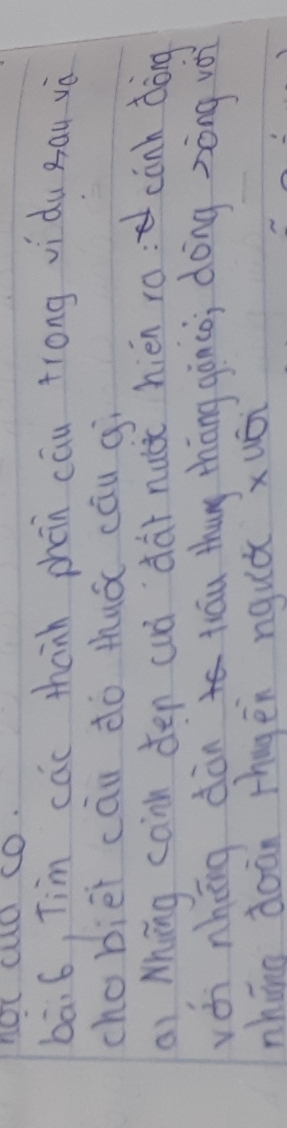 của cô.
bài 6, Tìm các thành phần câu trong ví dụ sau và
cho biết câu đó thuộc câu gì.
a) Những cảnh đẹp của đất nước hiện ra: cánh đồng
với những đàn trâu thung thăng gặm cỏ; dòng sông với
những đoàn thuyền ngược xuôi